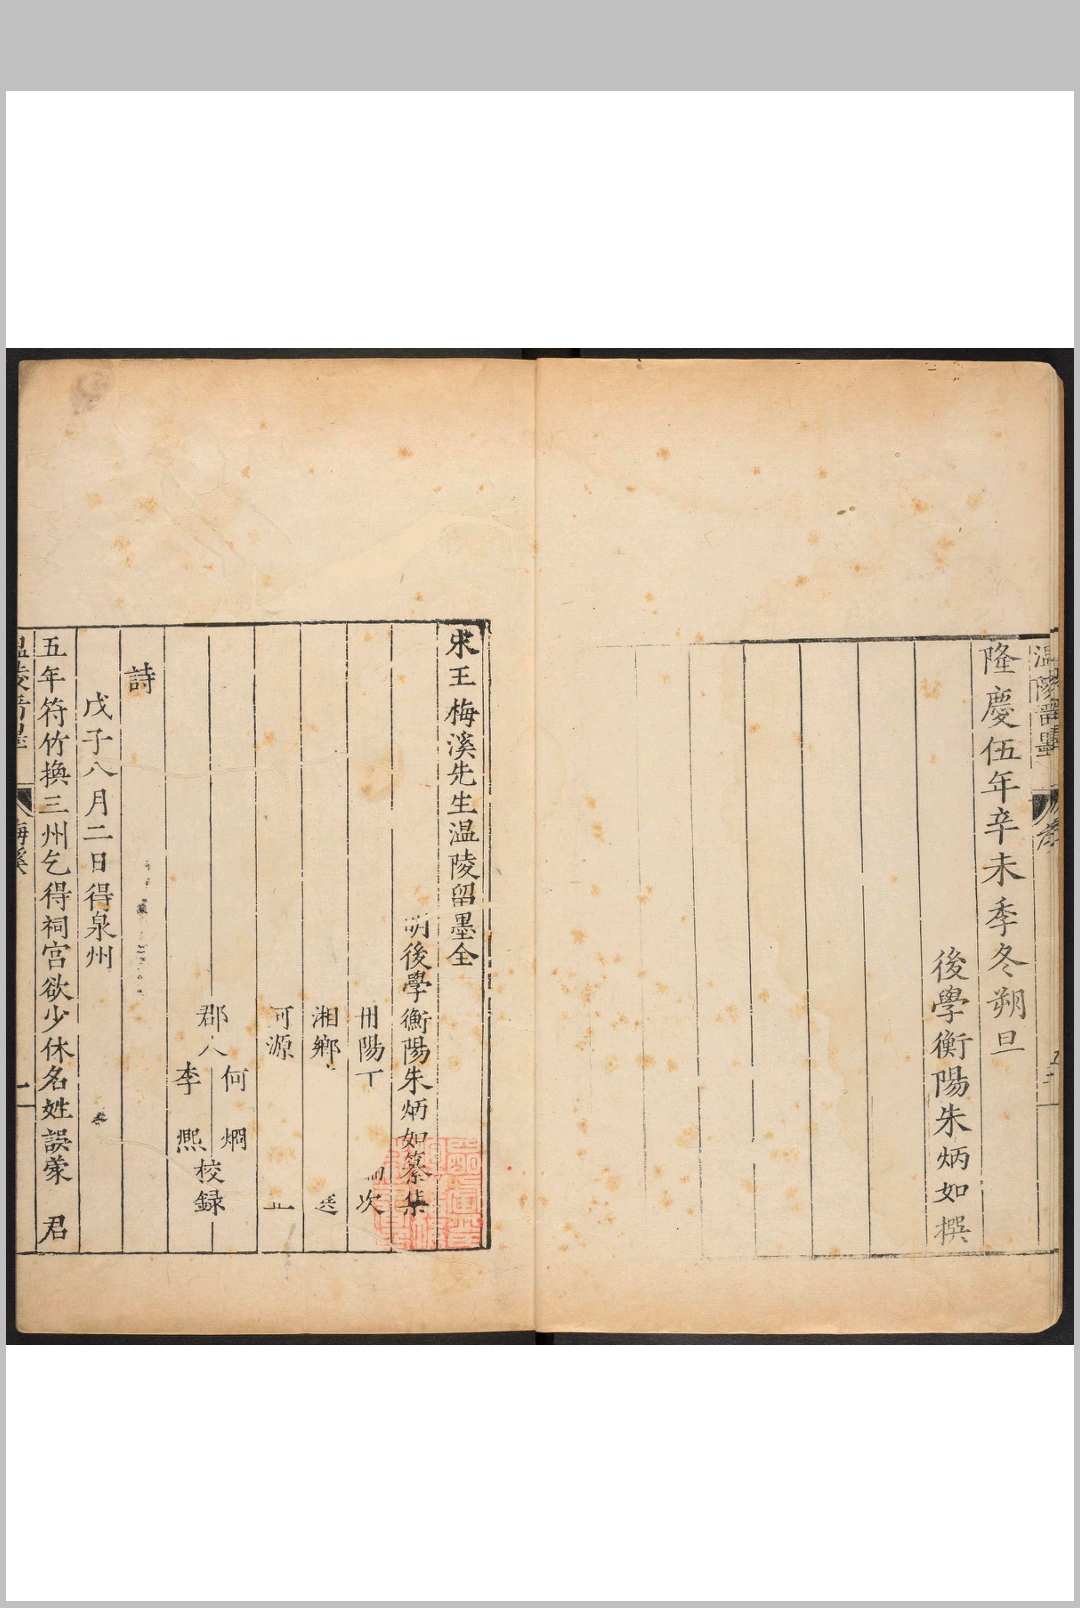 溫陵留墨
隆慶伍年辛未季冬朔旦
後學衡陽朱炳如撰
宋王梅溪先生溫陵留墨全
明後學衡陽朱炳如纂集
陽丁
次
湘鄉
河源
郡人何炯
李熙
校錄
詩
戊子八月二日得泉州
五年符竹換三州乞得祠宮欲少休名姓誤蒙　君
梅溪